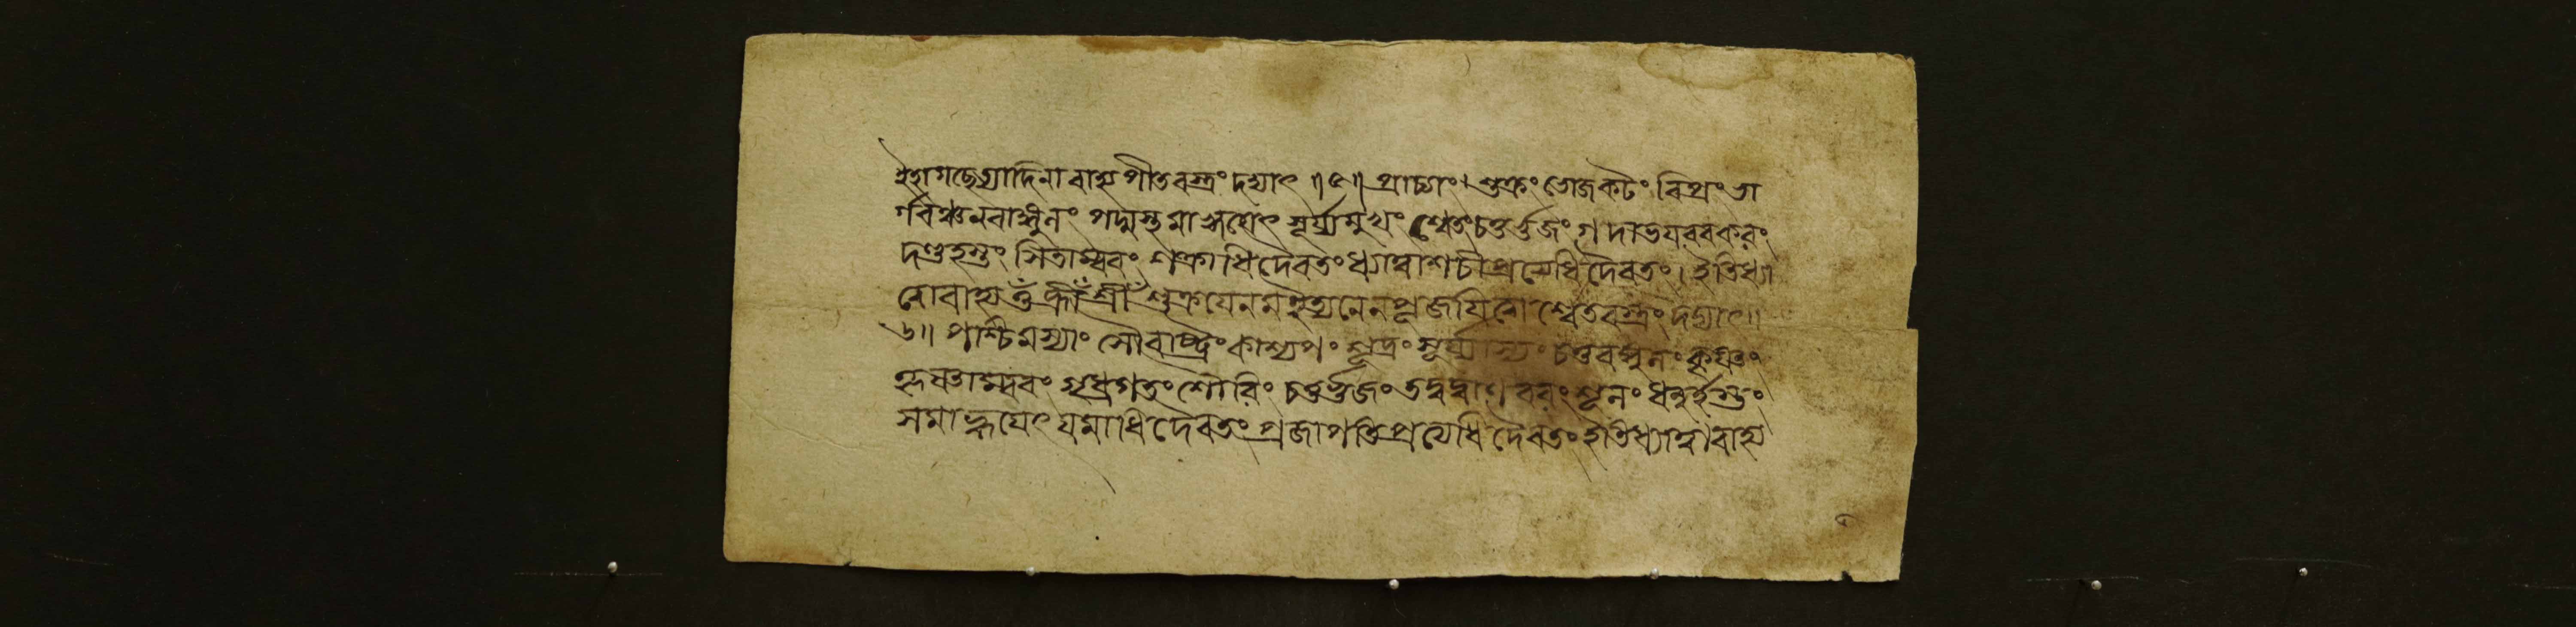 ইহাগচ্ছেত্যাদিনাবাহ্য পীতবস্ত্রং দদ্যাৎ ॥৫॥ প্রাচ্যাং। শুক্রং ভোজকটং বিপ্রং ভা
র্গবঞ্চনবাঙ্গুলং পদ্মস্থমাহ্বয়েৎ সূর্য্যমুখং শ্বেতং চতুর্ভুজং গদাভয়বরকরং
দণ্ডহস্তং সিতাম্বরং শক্রাধিদৈবতং ধ্যাত্বা শচীপ্রত্যধিদৈবতং। ইতি ধ্যা
ত্বাবাহ্য ওঁ হ্রীঁ শ্রীঁ শুক্রায় নম ইত্যনেন পূজয়িত্বা শ্বেতবস্ত্রং দদ্যাৎ॥
৬॥ পশ্চিমস্যাং সৌরাষ্ট্রং কাশ্যপং শূদ্রং সূর্য্যাস্যং চতুরঙ্গুলং কৃষ্ণং
কৃষ্ণাম্বরং গৃধ্রগতং শৌরিং চতুর্ভুজং তদ্বদ্বাণবরং শূলং ধনুর্হস্তং
সমাহ্বয়েৎ যমাধিদৈবতং প্রজাপতিপ্রত্যধিদৈবতং ইতি ধ্যাত্বাবাহ্য